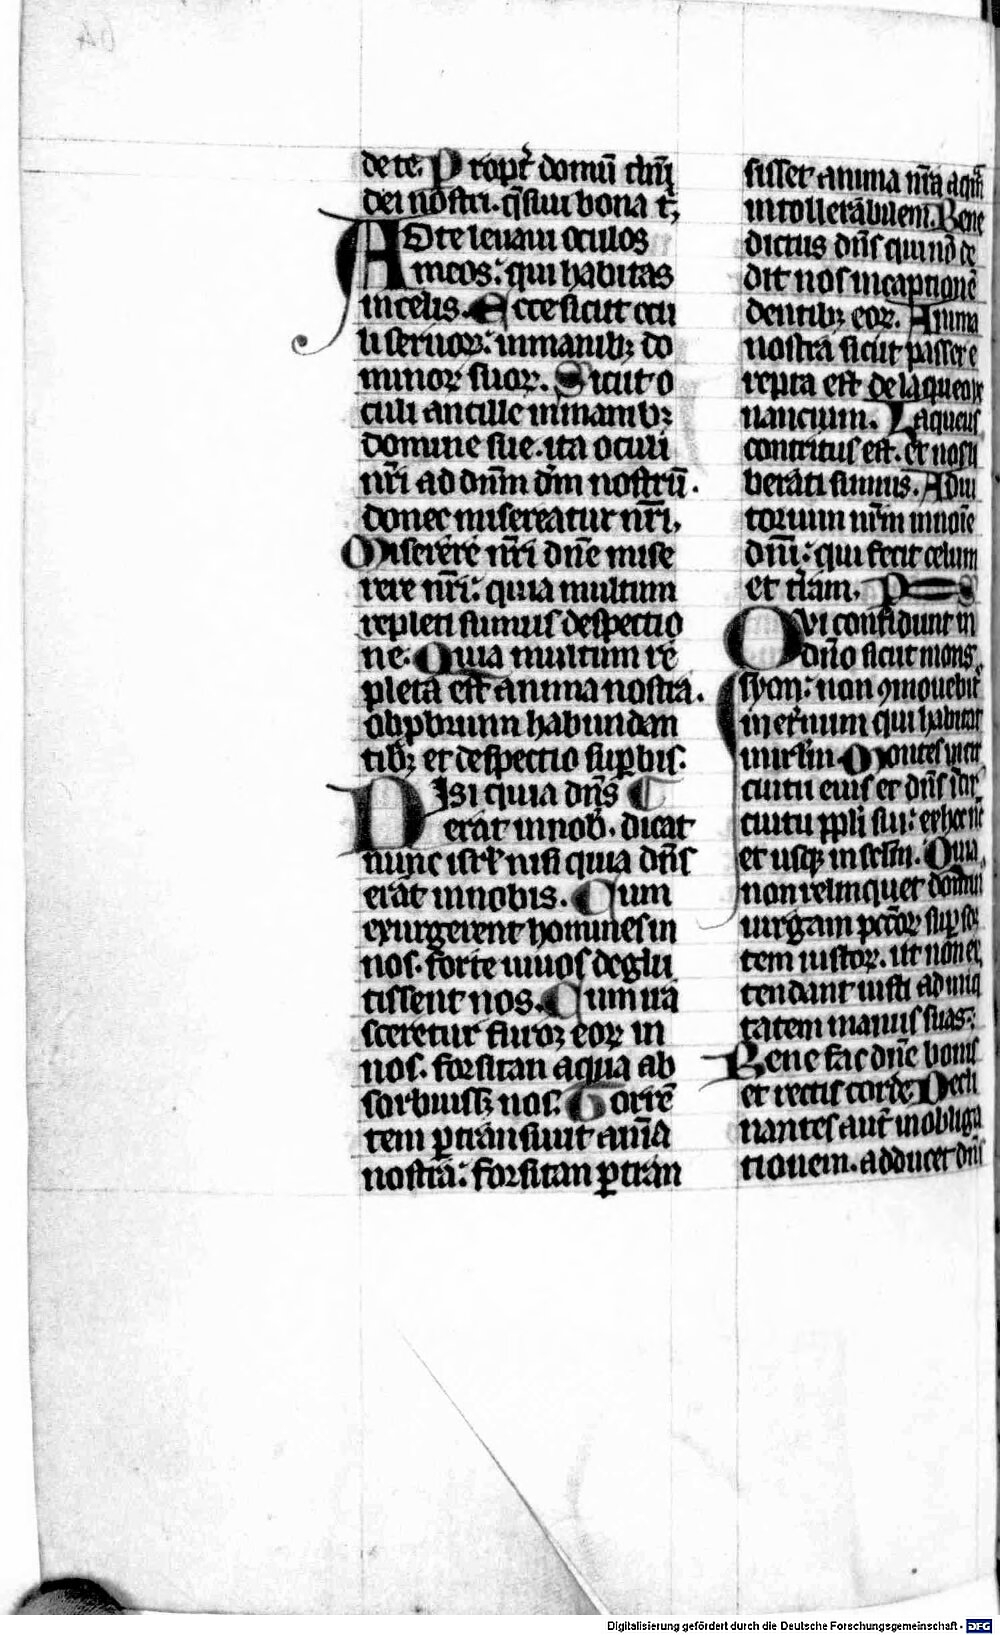 de te. Propt̄ domū dn̄i
dei nostri. q̄siui bona t;
AD te leuaui oculos
meos: qui habitas
in celis. Ecce sicut ocu
li seruoꝝ: in manibꝫ do
minoꝝ suoꝝ. Sicut o
culi ancille in manibꝫ
domine sue. ita oculi
nr̄i ad dn̄m dm̄ nostrū.
donec misereatur nr̄i.
Miserere nr̄i dn̄e mise
rere nr̄i: quia multum
repleti sumus despectio
ne: Quia multum re
pleta est anima nostra.
obp̱brium habundan
tibꝫ et despectio sup̱bis:
NIsi quia dn̄s
erat in nob̄. dicat
nunc isrl̄ nisi quia dn̄s
erat in nobis. Cum
exurgerent homines in
nos. forte uiuos deglu
tissent nos. Cum ira
sceretur furoꝛ eoꝝ in
nos. forsitan aqua ab
sorbuissꝫ nos. Torrē
tem p̱transiuit anīa
nostra: forsitan p̱tran
sisset anima nr̄a aquā
intollerabilem. Bene
dictus dn̄s qui nō de
dit nos in captionē
dentibꝫ eoꝝ. Anima
nostra sicut passer e
repta est de laqueo ue
nancium. Laqueus
contritus est. et nos li
berati sumus. Adiu
torium nr̄m in noīe
dn̄i: qui fecit celum
et tr̄am. Ps
QVi confidunt in
dn̄o sicut mons
syon: non ꝯmouebit᷑
in et̄num qui habitat
in irlm̄. Montes in cir
cuitu eius et dn̄s in cir
cuitu ppl̄i sui: ex hoc nc̄
et usqꝫ in sclm̄. Quia
non relinquet domin
uirgam pctōꝝ sup̱ sor
tem iustoꝝ. ut non ex
tendant iusti ad iniq
tatem manus suas:
Bene fac dn̄e bonis
et rectis corde. Decli
nantes aut̄ in obliga
tionem. adducet dn̄s
Digitalisierung gefördert durch die Deutsche Forschungsgemeinschaft - DFG